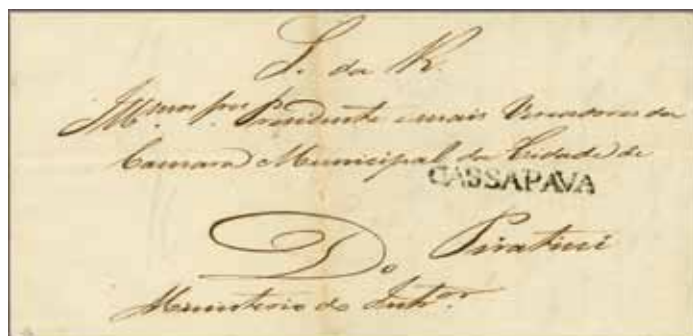 S. da R.
Ill.mos Snrs Presidente e mais Vereadores da
Camara Municipal da Cidade de
CASSAPAVA
Piratini
Do
Ministerio do Intr.or